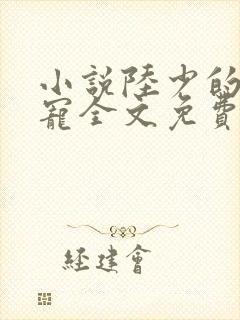 小說陸少的
寵全文免費
經建會